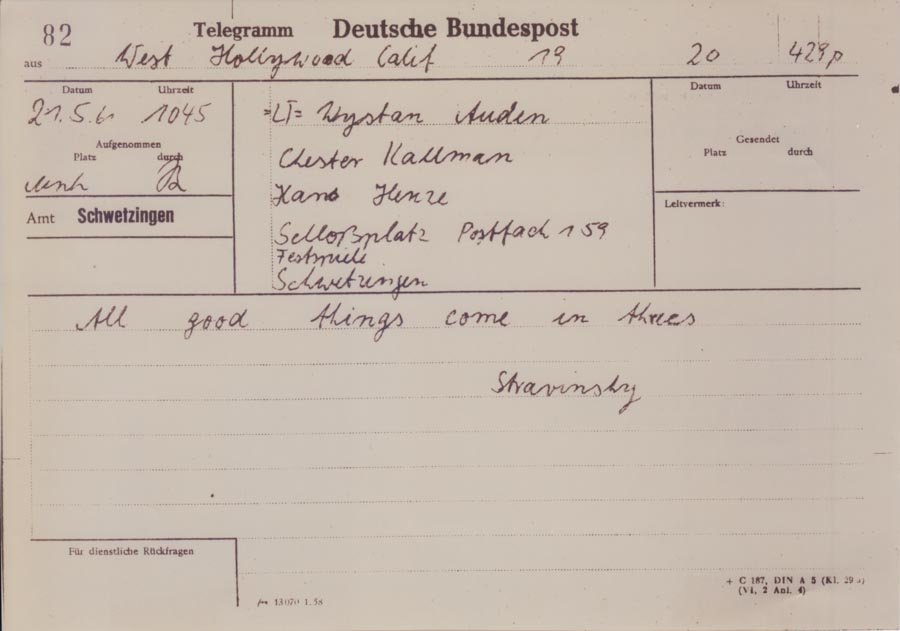 82 Telegramm Deutsche Bundespost
aus West Hollywood Calif 19 20 429p
Datum Uhrzeit
21.5.61 1045
Aufgenommen
Platz durch
Amt Schwetzingen
=LT= Wystan Auden
Chester Kallman
Hans Henze
Schloßplatz Postfach 159
Festspiele
Schwetzingen
Datum Uhrzeit
Gesendet
Platz durch
Leitvermerk:
All good things come in threes
Stravinsky
Für dienstliche Rückfragen
13070 1.58
+ C 187, DIN A 5 (Kl. 29 a)
(VI, 2 Anl. 4)